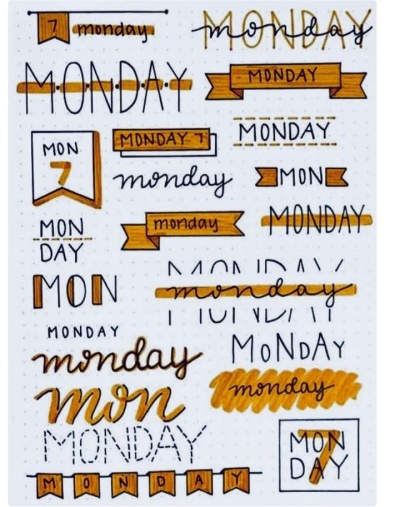 7 monday
MONDAY
monday
MONDAY
MONDAY
MON
7
MONDAY 7
MONDAY
monday
MON
MON
DAY
monday
MONDAY
MON
MONDAY
monday
MONDAY
monday
MONDAY
mon
monday
MONDAY
MON
7
DAY
MONDAY